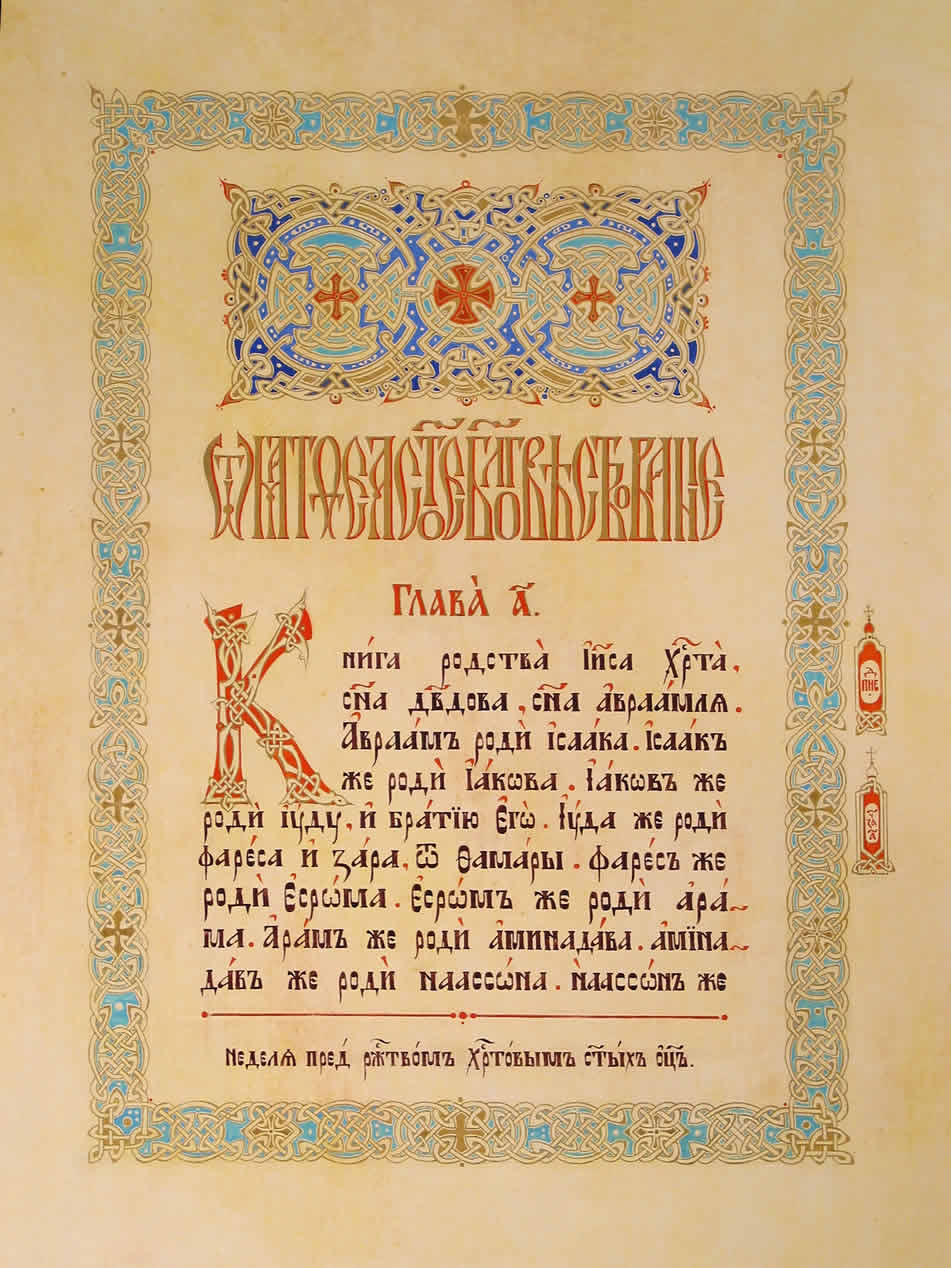 Ѿ МАТѲЕѦ С҃ТОЕ Б҃ЛГОВѢСТВОВАНІЕ
Глава̀ а҃.
Кни́га родства̀ І҆и҃са Хр҇та̀,
сн҃а дв҃дова, сн҃а а҆враа́мля.
А҆враа́мъ родѝ і҆саа́ка. І҆саа́къ
же родѝ І҆а́кѡва. І҆а́кѡвъ же
родѝ і҆ꙋ́дꙋ, и҆ бра́тїю Е҆гѡ̀. І҆ꙋ́да же родѝ
фаре́са и҆ за́ра, ѿ Ѳама́ры. фаре́съ же
родѝ Е҆срѡ́ма. Е҆срѡ́мъ же родѝ а҆ра́-
ма. А҆ра́мъ же родѝ а҆минада́ва. а҆мїна-
да́въ же родѝ наассѡ́на. Наассѡ́нъ же
Неделѧ пред̾ рж҇тво́мъ Хр҇то́вымъ ст҃ы́хъ ѻ҆ц҃ъ.
д
пне
за҃ч
а҃